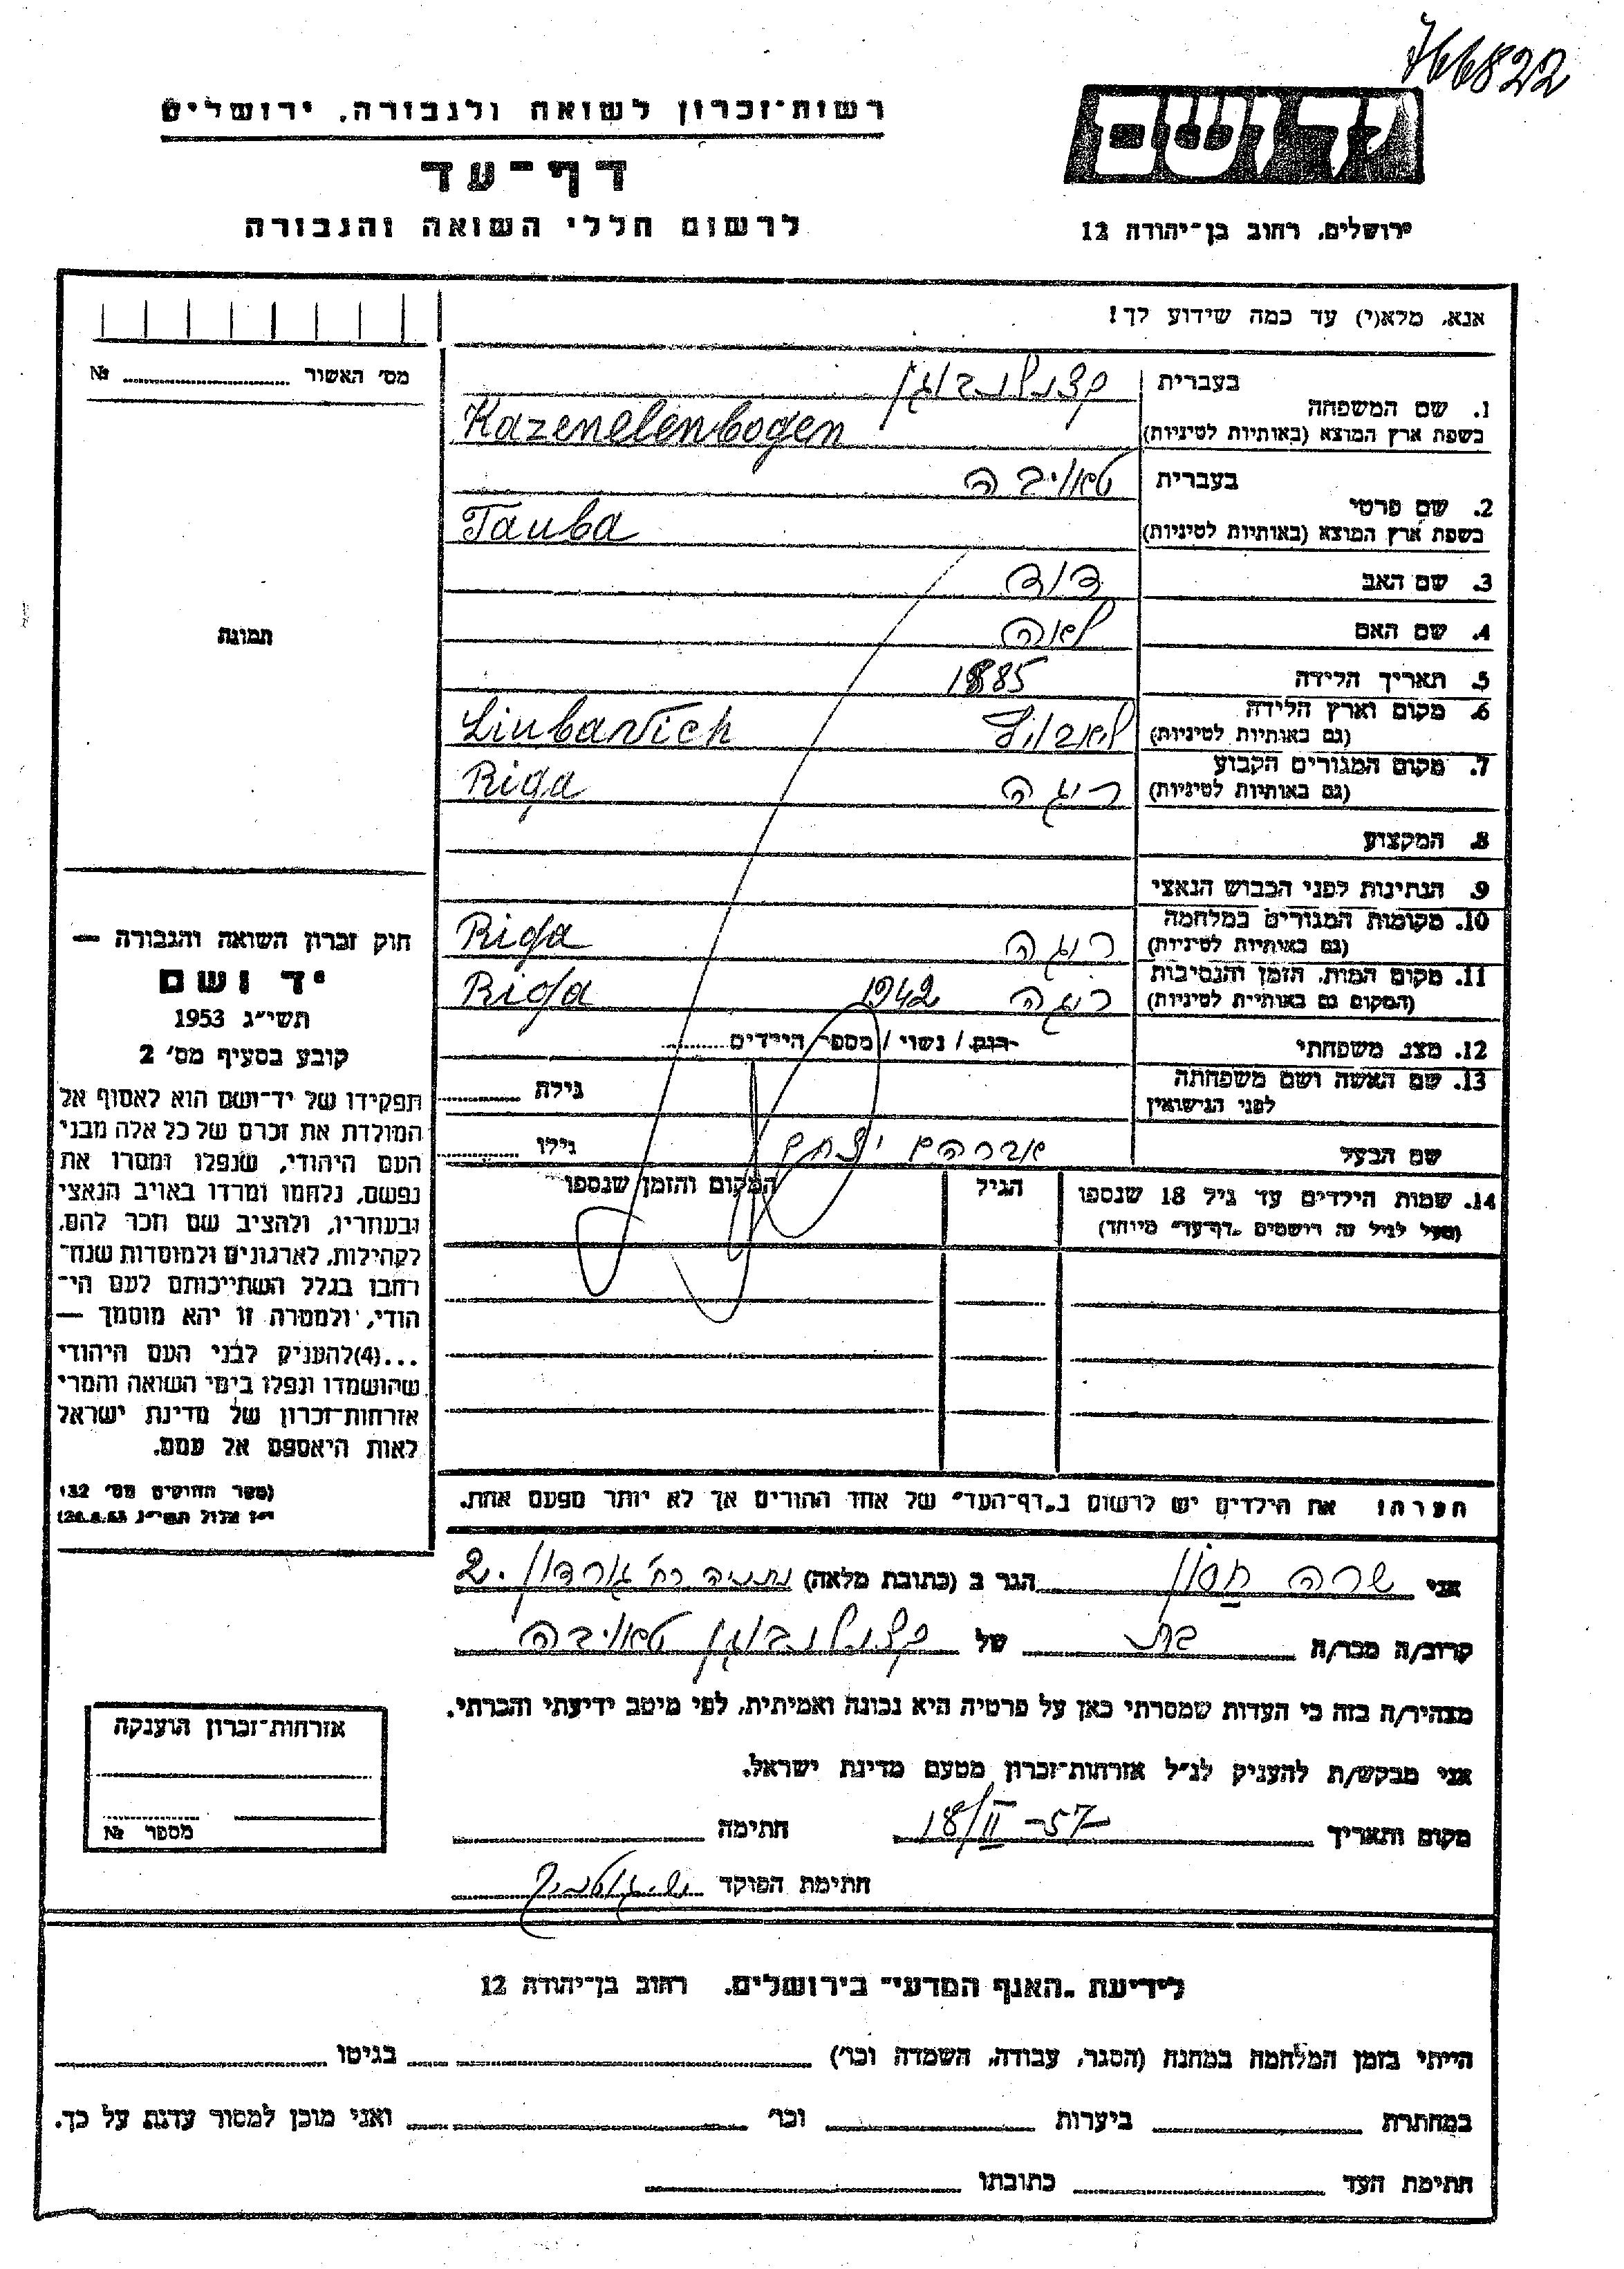 766822
רשות־זכרון לשואה ולגבורה, ירושלים
דף־עד
לרשום חללי השואה והגבורה
ידושם
ירושלים, רחוב בן־יהודה 12
אנא, מלא(י) עד כמה שידוע לך!
מס' האשור № ........
1. שם המשפחה
בעברית קצנלנבוגן
בשפת ארץ המוצא (באותיות לטיניות) Kazenelenbogen
2. שם פרטי
בעברית טאובה
בשפת ארץ המוצא (באותיות לטיניות) Tauba
3. שם האב דוד
4. שם האם לאה
5. תאריך הלידה 1885
6. מקום וארץ הלידה
(גם באותיות לטיניות) Liubavich
7. מקום המגורים הקבוע ריגה
(גם באותיות לטיניות) Riga
8. המקצוע
9. הנתינות לפני הכבוש הנאצי
10. מקומות המגורים במלחמה ריגה
(גם באותיות לטיניות) Riga
11. מקום המות, הזמן והנסיבות ריגה 1942
(המקום גם באותיות לטיניות) Riga
12. מצב משפחתי רווק / נשוי / מספר הילדים ........
13. שם האשה ושם משפחתה
לפני הנישואין גילה ........
שם הבעל אברהם יצחק גילו ........
14. שמות הילדים עד גיל 18 שנספו
(מעל לגיל זה רושמים "דף־עד" מיוחד)
הגיל
המקום והזמן שנספו
הערה: את הילדים יש לרשום ב"דף־העד" של אחד ההורים אך לא יותר מפעם אחת.
תמונה
חוק זכרון השואה והגבורה —
יד ושם
תשי"ג 1953
קובע בסעיף מס' 2
תפקידו של יד־ושם הוא לאסוף אל
המולדת את זכרם של כל אלה מבני
העם היהודי, שנפלו ומסרו את
נפשם, נלחמו ומרדו באויב הנאצי
ובעוזריו, ולהציב שם וזכר להם,
לקהילות, לארגונים ולמוסדות שנח־
רבו בגלל השתייכותם לעם הי־
הודי, ולמטרה זו יהא מוסמך —
...(4) להעניק לבני העם היהודי
שהושמדו ונפלו בימי השואה והמרי
אזרחות־זכרון של מדינת ישראל
לאות היאספם אל עמם.
(ספר החוקים מס' 132
י"ז אלול תשי"ג 28.8.53)
אני שרה חסון הגר ב (כתובת מלאה) נתניה רח' גורדון 2.
קרוב/ה מכר/ה בת של קצנלנבוגן טאובה
מצהיר/ה בזה כי העדות שמסרתי כאן על פרטיה היא נכונה ואמיתית, לפי מיטב ידיעתי והכרתי.
אני מבקש/ת להעניק לנ"ל אזרחות־זכרון מטעם מדינת ישראל.
מקום ותאריך 18/II-57 חתימה
חתימת הפוקד
אזרחות־זכרון הוענקה
מספר №
לידיעת "האגף המדעי" בירושלים, רחוב בן־יהודה 12
הייתי בזמן המלחמה במחנה (הסגר, עבודה, השמדה וכו') ........ בגיטו ........
במחתרת ........ ביערות ........ וכו' ........ ואני מוכן למסור עדות על כך.
חתימת העד ........ כתובתו ........